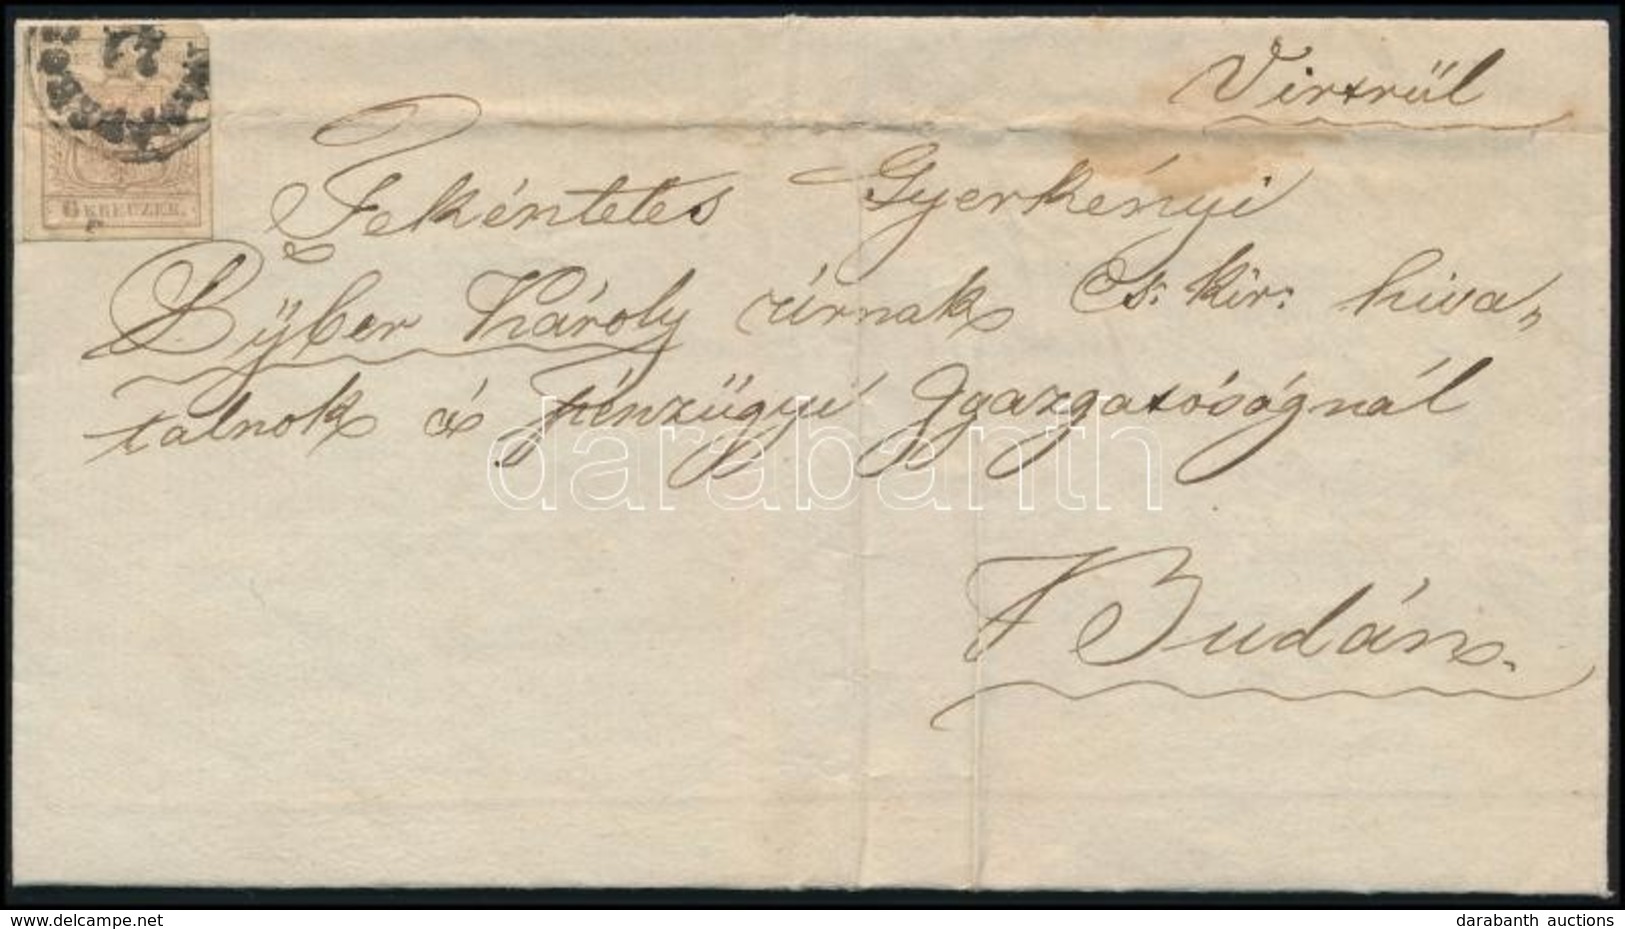 Virtrül
Tekéntetes Gyerkényi
Pÿber Károly úrnak Cs: kir: hiva„
talnok és pénzügyi Igazgatóságnál
Budán.
6 KREUZER.
22
darabanth
www.delcampe.net
darabanth auctions